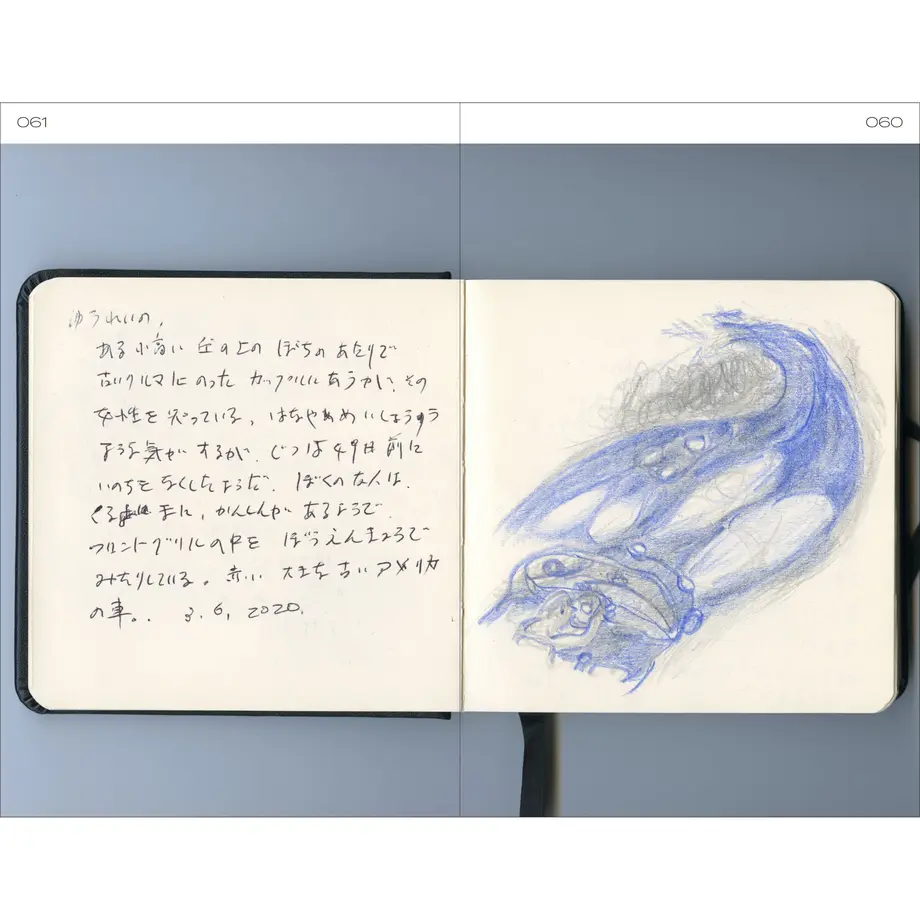 061
060
ゆうれいの,
ある小高い丘の上のぼちのあたりで
古いクルマにのったカップルにあうかに、その
女性を知っている。はなやかめいしょう
ような気がするが、じつは49日前に
いのちをなくしたようだ。ぼくの友人は、
くるまに、かんしんがあるようで、
フロントグリルの中をぼうえんきょうで
みたりしている。赤い大きな古いアメリカ
の車。. 3.6, 2020.